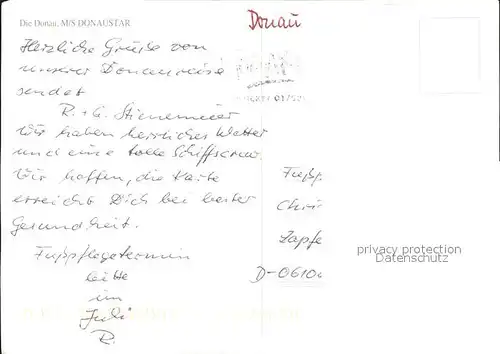 Die Donau, M/S DONAUSTAR
Donau
Herzliche Grüße von
unserer Donaureise
sendet
R. + G.
Wir haben herrliches Wetter
und eine tolle Schiffscrew.
Wir hoffen, die Karte
erreicht Dich bei bester
Gesundheit.
Fußpflegetermin
bitte
im
Juli
R.
Fußp
Chri
Zapfe
D-0610
privacy protection
Datenschutz